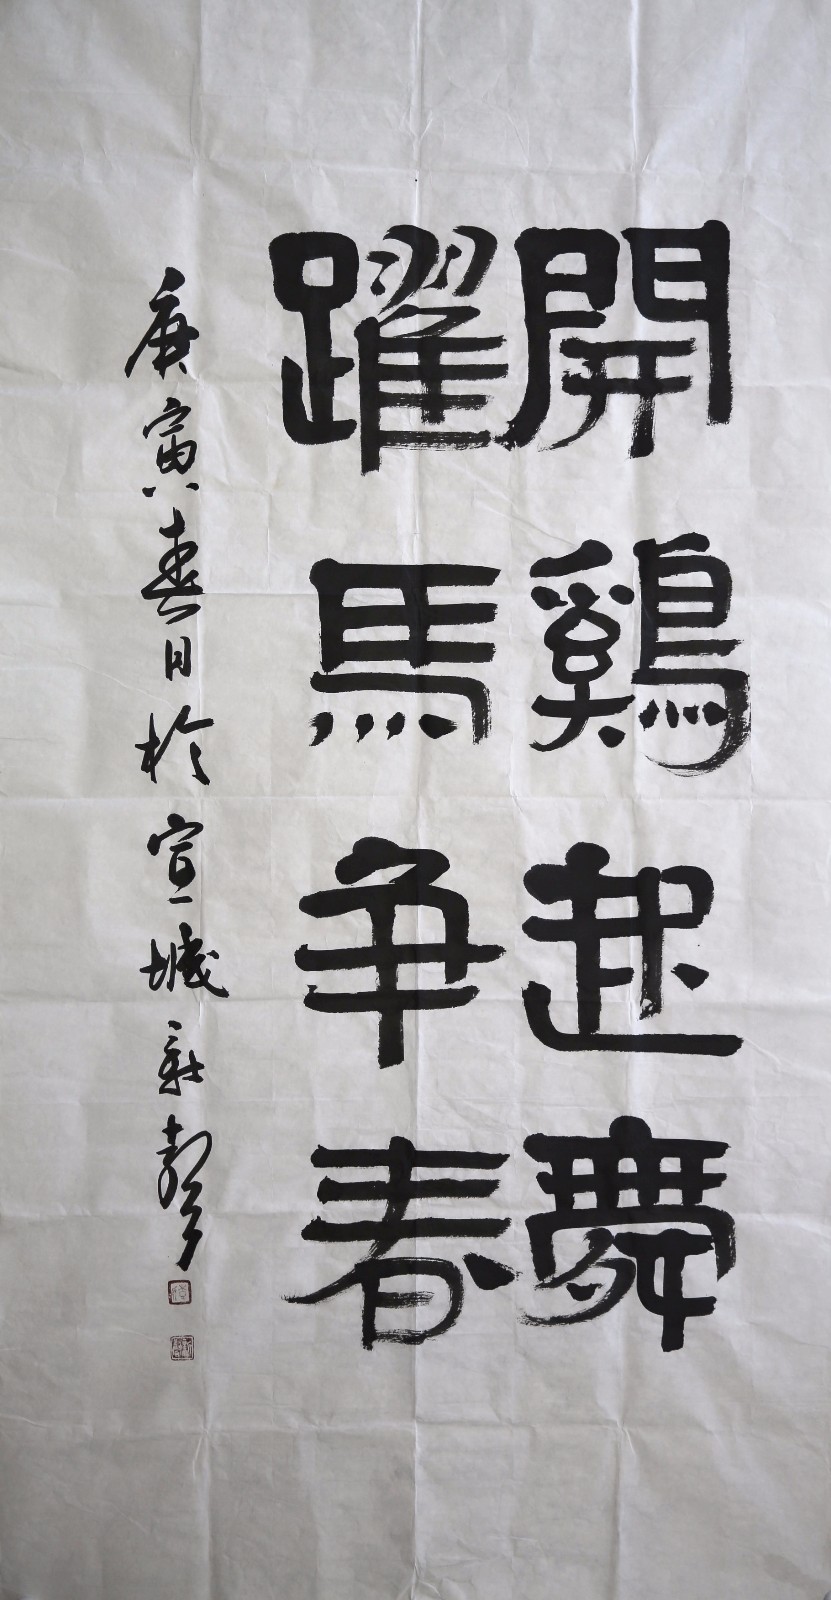 開鷄起舞
躍馬争春
庚寅春日於宣城